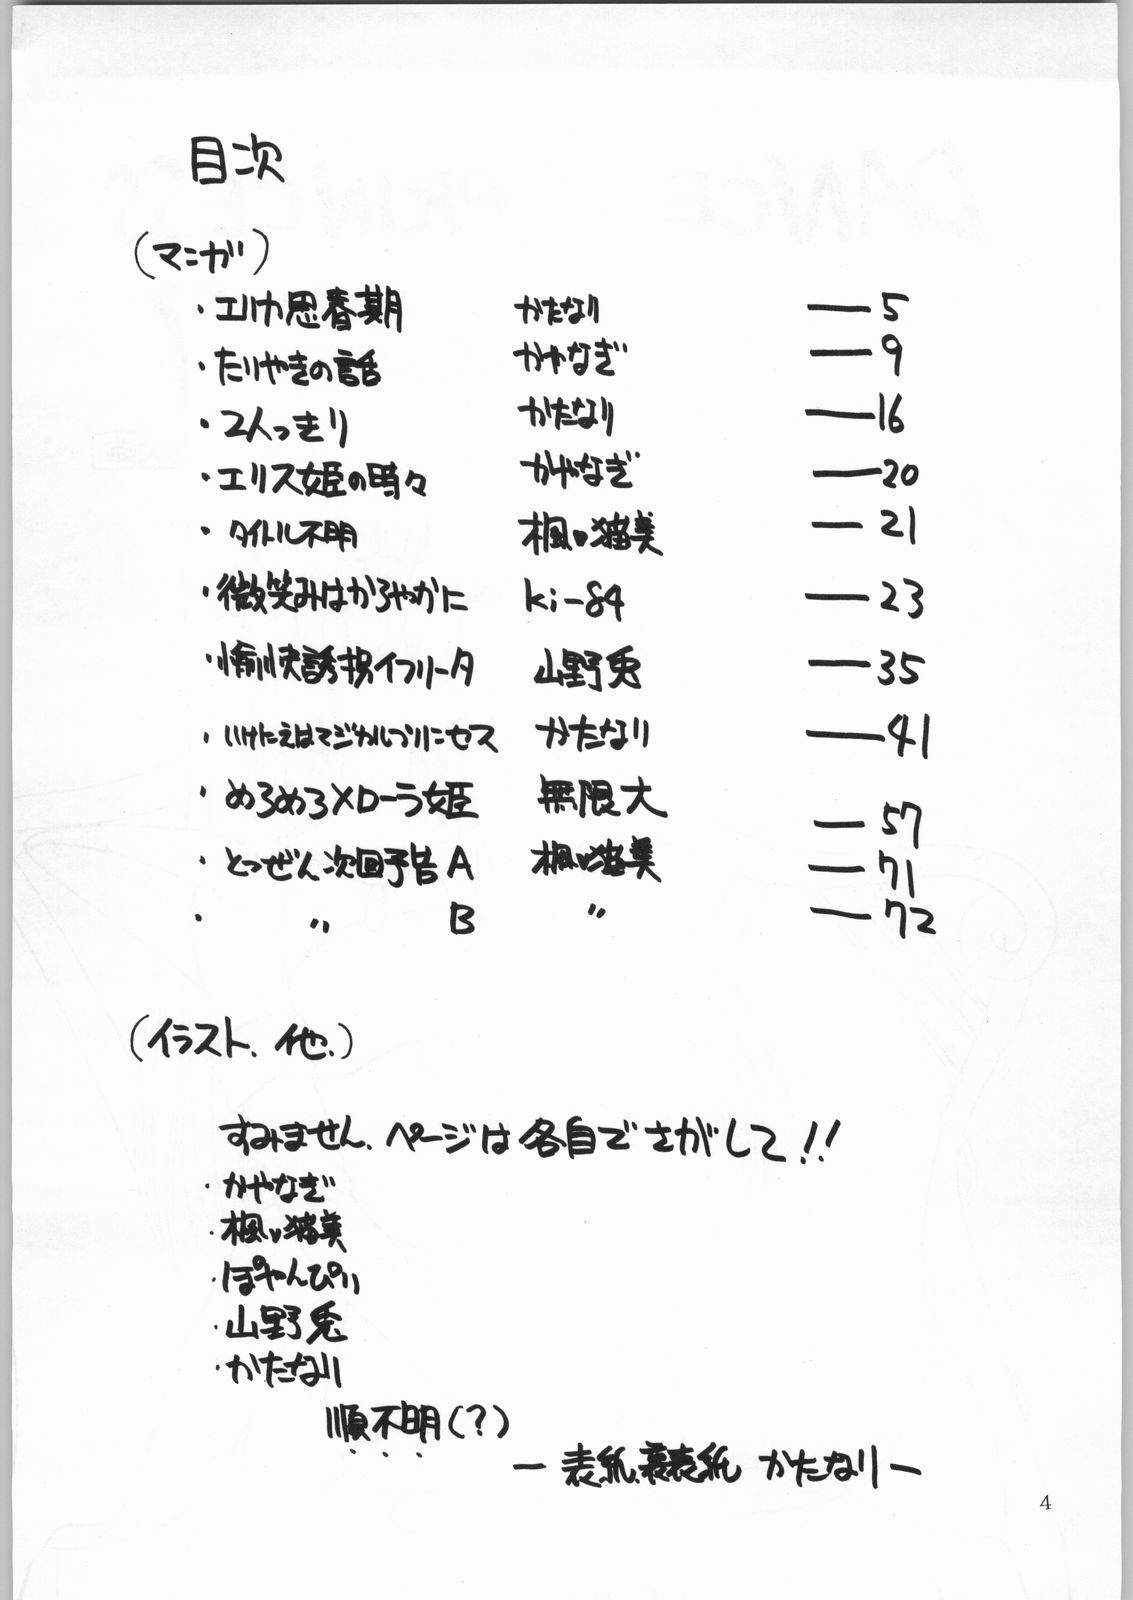 目次
(マンガ)
・エリカ思春期 かたなり — 5
・たりやきの話 かやなぎ — 9
・2人っきり かたなり — 16
・エリス姫の時々 かやなぎ — 20
・タイトル不明 楓い猫美 — 21
・微笑みはかろやかに ki-84 — 23
・愉快誘拐イフリータ 山野兎 — 35
・いけにえはマジカルプリンセス かたなり — 41
・めろめろ×ローラ姫 無限大 — 57
・とつぜん次回予告A 楓い猫美 — 71
・〃 B 〃 — 72
(イラスト、他、)
すみません、ページは各自でさがして!!
・かやなぎ
・楓い猫美
・ぽやんぴい
・山野兎
・かたなり
順不明(?)
— 表紙、裏表紙 かたなり —
4